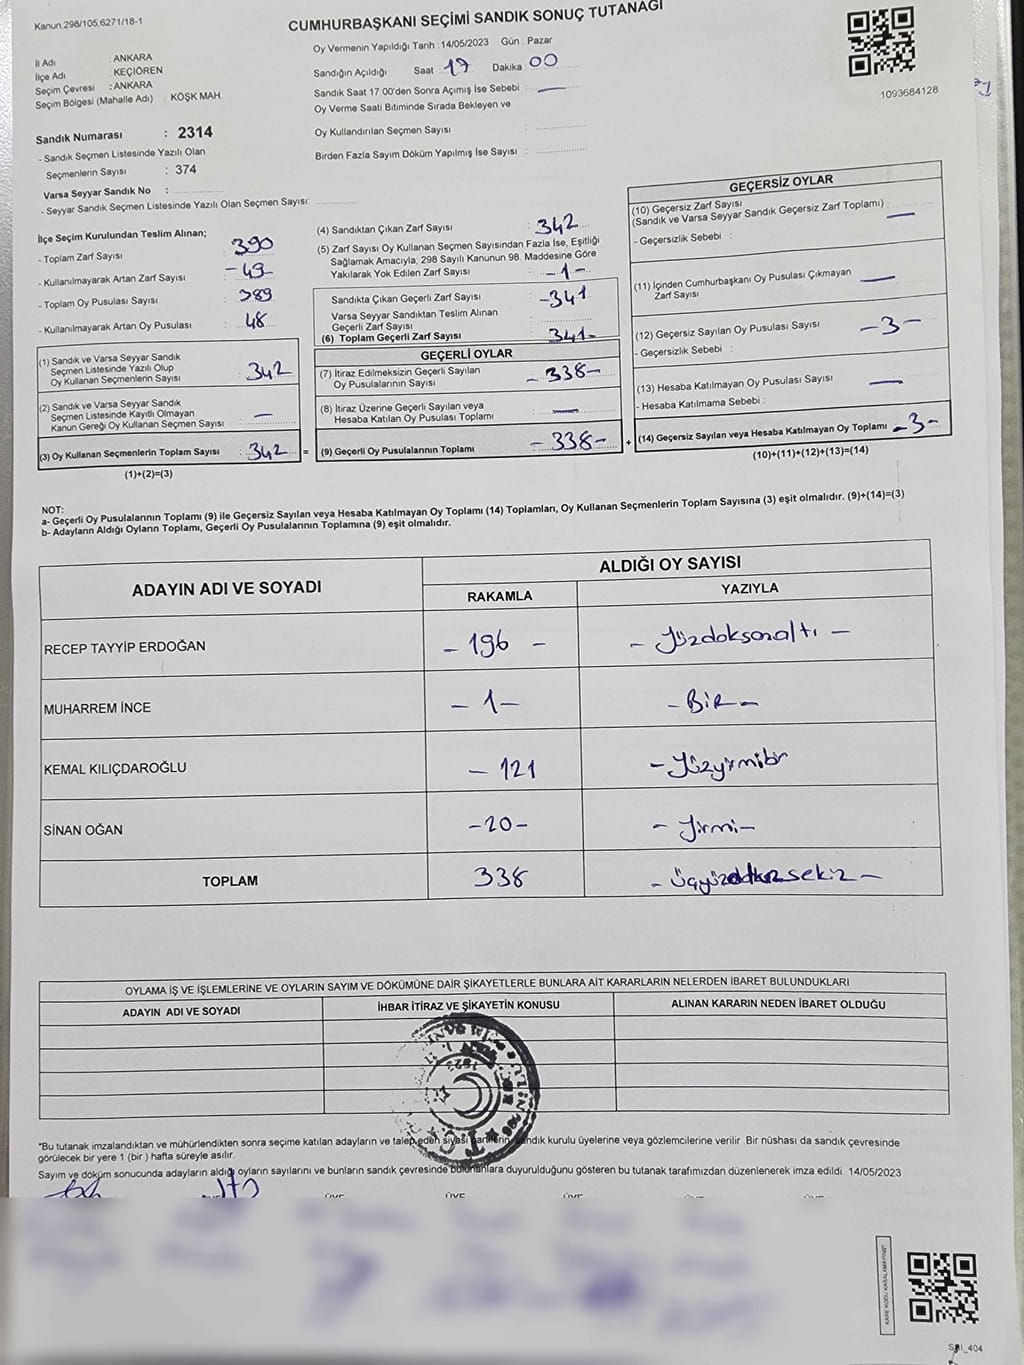 Kanun:298/105,6271/18-1
CUMHURBAŞKANI SEÇİMİ SANDIK SONUÇ TUTANAĞI
İl Adı : ANKARA
İlçe Adı : KEÇİÖREN
Seçim Çevresi : ANKARA
Seçim Bölgesi (Mahalle Adı) : KÖŞK MAH.
Sandık Numarası : 2314
- Sandık Seçmen Listesinde Yazılı Olan
Seçmenlerin Sayısı : 374
Varsa Seyyar Sandık No :
- Seyyar Sandık Seçmen Listesinde Yazılı Olan Seçmen Sayısı:
Oy Vermenin Yapıldığı Tarih :14/05/2023 Gün : Pazar
Sandığın Açıldığı Saat 17 Dakika 00
Sandık Saat 17:00'den Sonra Açımış İse Sebebi : —
Oy Verme Saati Bitiminde Sırada Bekleyen ve
Oy Kullandırılan Seçmen Sayısı :
Birden Fazla Sayım Döküm Yapılmış İse Sayısı :
1093684128
İlçe Seçim Kurulundan Teslim Alınan;
- Toplam Zarf Sayısı : 390
- Kullanılmayarak Artan Zarf Sayısı : -49
- Toplam Oy Pusulası Sayısı : 389
- Kullanılmayarak Artan Oy Pusulası : 48
(1) Sandık ve Varsa Seyyar Sandık
Seçmen Listesinde Yazılı Olup
Oy Kullanan Seçmenlerin Sayısı : 342
(2) Sandık ve Varsa Seyyar Sandık
Seçmen Listesinde Kayıtlı Olmayan
Kanun Gereği Oy Kullanan Seçmen Sayısı : —
(3) Oy Kullanan Seçmenlerin Toplam Sayısı : 342 =
(1)+(2)=(3)
(4) Sandıktan Çıkan Zarf Sayısı : 342
(5) Zarf Sayısı Oy Kullanan Seçmen Sayısından Fazla İse, Eşitliği
Sağlamak Amacıyla; 298 Sayılı Kanunun 98. Maddesine Göre
Yakılarak Yok Edilen Zarf Sayısı : -1-
Sandıkta Çıkan Geçerli Zarf Sayısı : -341
Varsa Seyyar Sandıktan Teslim Alınan
Geçerli Zarf Sayısı :
(6) Toplam Geçerli Zarf Sayısı : 341-
GEÇERLİ OYLAR
(7) İtiraz Edilmeksizin Geçerli Sayılan
Oy Pusulalarının Sayısı : -338-
(8) İtiraz Üzerine Geçerli Sayılan veya
Hesaba Katılan Oy Pusulası Toplamı : —
(9) Geçerli Oy Pusulalarının Toplamı : -338- +
GEÇERSİZ OYLAR
(10) Geçersiz Zarf Sayısı
(Sandık ve Varsa Seyyar Sandık Geçersiz Zarf Toplamı) : —
- Geçersizlik Sebebi :
(11) İçinden Cumhurbaşkanı Oy Pusulası Çıkmayan
Zarf Sayısı : —
(12) Geçersiz Sayılan Oy Pusulası Sayısı : -3-
- Geçersizlik Sebebi :
(13) Hesaba Katılmayan Oy Pusulası Sayısı : —
- Hesaba Katılmama Sebebi :
(14) Geçersiz Sayılan veya Hesaba Katılmayan Oy Toplamı : -3-
(10)+(11)+(12)+(13)=(14)
NOT:
a- Geçerli Oy Pusulalarının Toplamı (9) ile Geçersiz Sayılan veya Hesaba Katılmayan Oy Toplamı (14) Toplamları, Oy Kullanan Seçmenlerin Toplam Sayısına (3) eşit olmalıdır. (9)+(14)=(3)
b- Adayların Aldığı Oyların Toplamı, Geçerli Oy Pusulalarının Toplamına (9) eşit olmalıdır.
ADAYIN ADI VE SOYADI
ALDIĞI OY SAYISI
RAKAMLA YAZIYLA
RECEP TAYYİP ERDOĞAN -196- -Yüzdoksanaltı-
MUHARREM İNCE -1- -BİR-
KEMAL KILIÇDAROĞLU -121 -Yüzyirmibir
SİNAN OĞAN -20- -Yirmi-
TOPLAM 338
OYLAMA İŞ VE İŞLEMLERİNE VE OYLARIN SAYIM VE DÖKÜMÜNE DAİR ŞİKAYETLERLE BUNLARA AİT KARARLARIN NELERDEN İBARET BULUNDUKLARI
ADAYIN ADI VE SOYADI İHBAR İTİRAZ VE ŞİKAYETİN KONUSU ALINAN KARARIN NEDEN İBARET OLDUĞU
*Bu tutanak imzalandıktan ve mühürlendikten sonra seçime katılan adayların ve talep eden siyasi partilerin sandık kurulu üyelerine veya gözlemcilerine verilir. Bir nüshası da sandık çevresinde
görülecek bir yere 1 (bir ) hafta süreyle asılır.
Sayım ve döküm sonucunda adayların aldığı oyların sayılarını ve bunların sandık çevresinde bulunanlara duyurulduğunu gösteren bu tutanak tarafımızdan düzenlenerek imza edildi 14/05/2023
ÜYE ÜYE ÜYE
KARE KODU KARALAMAYINIZ!